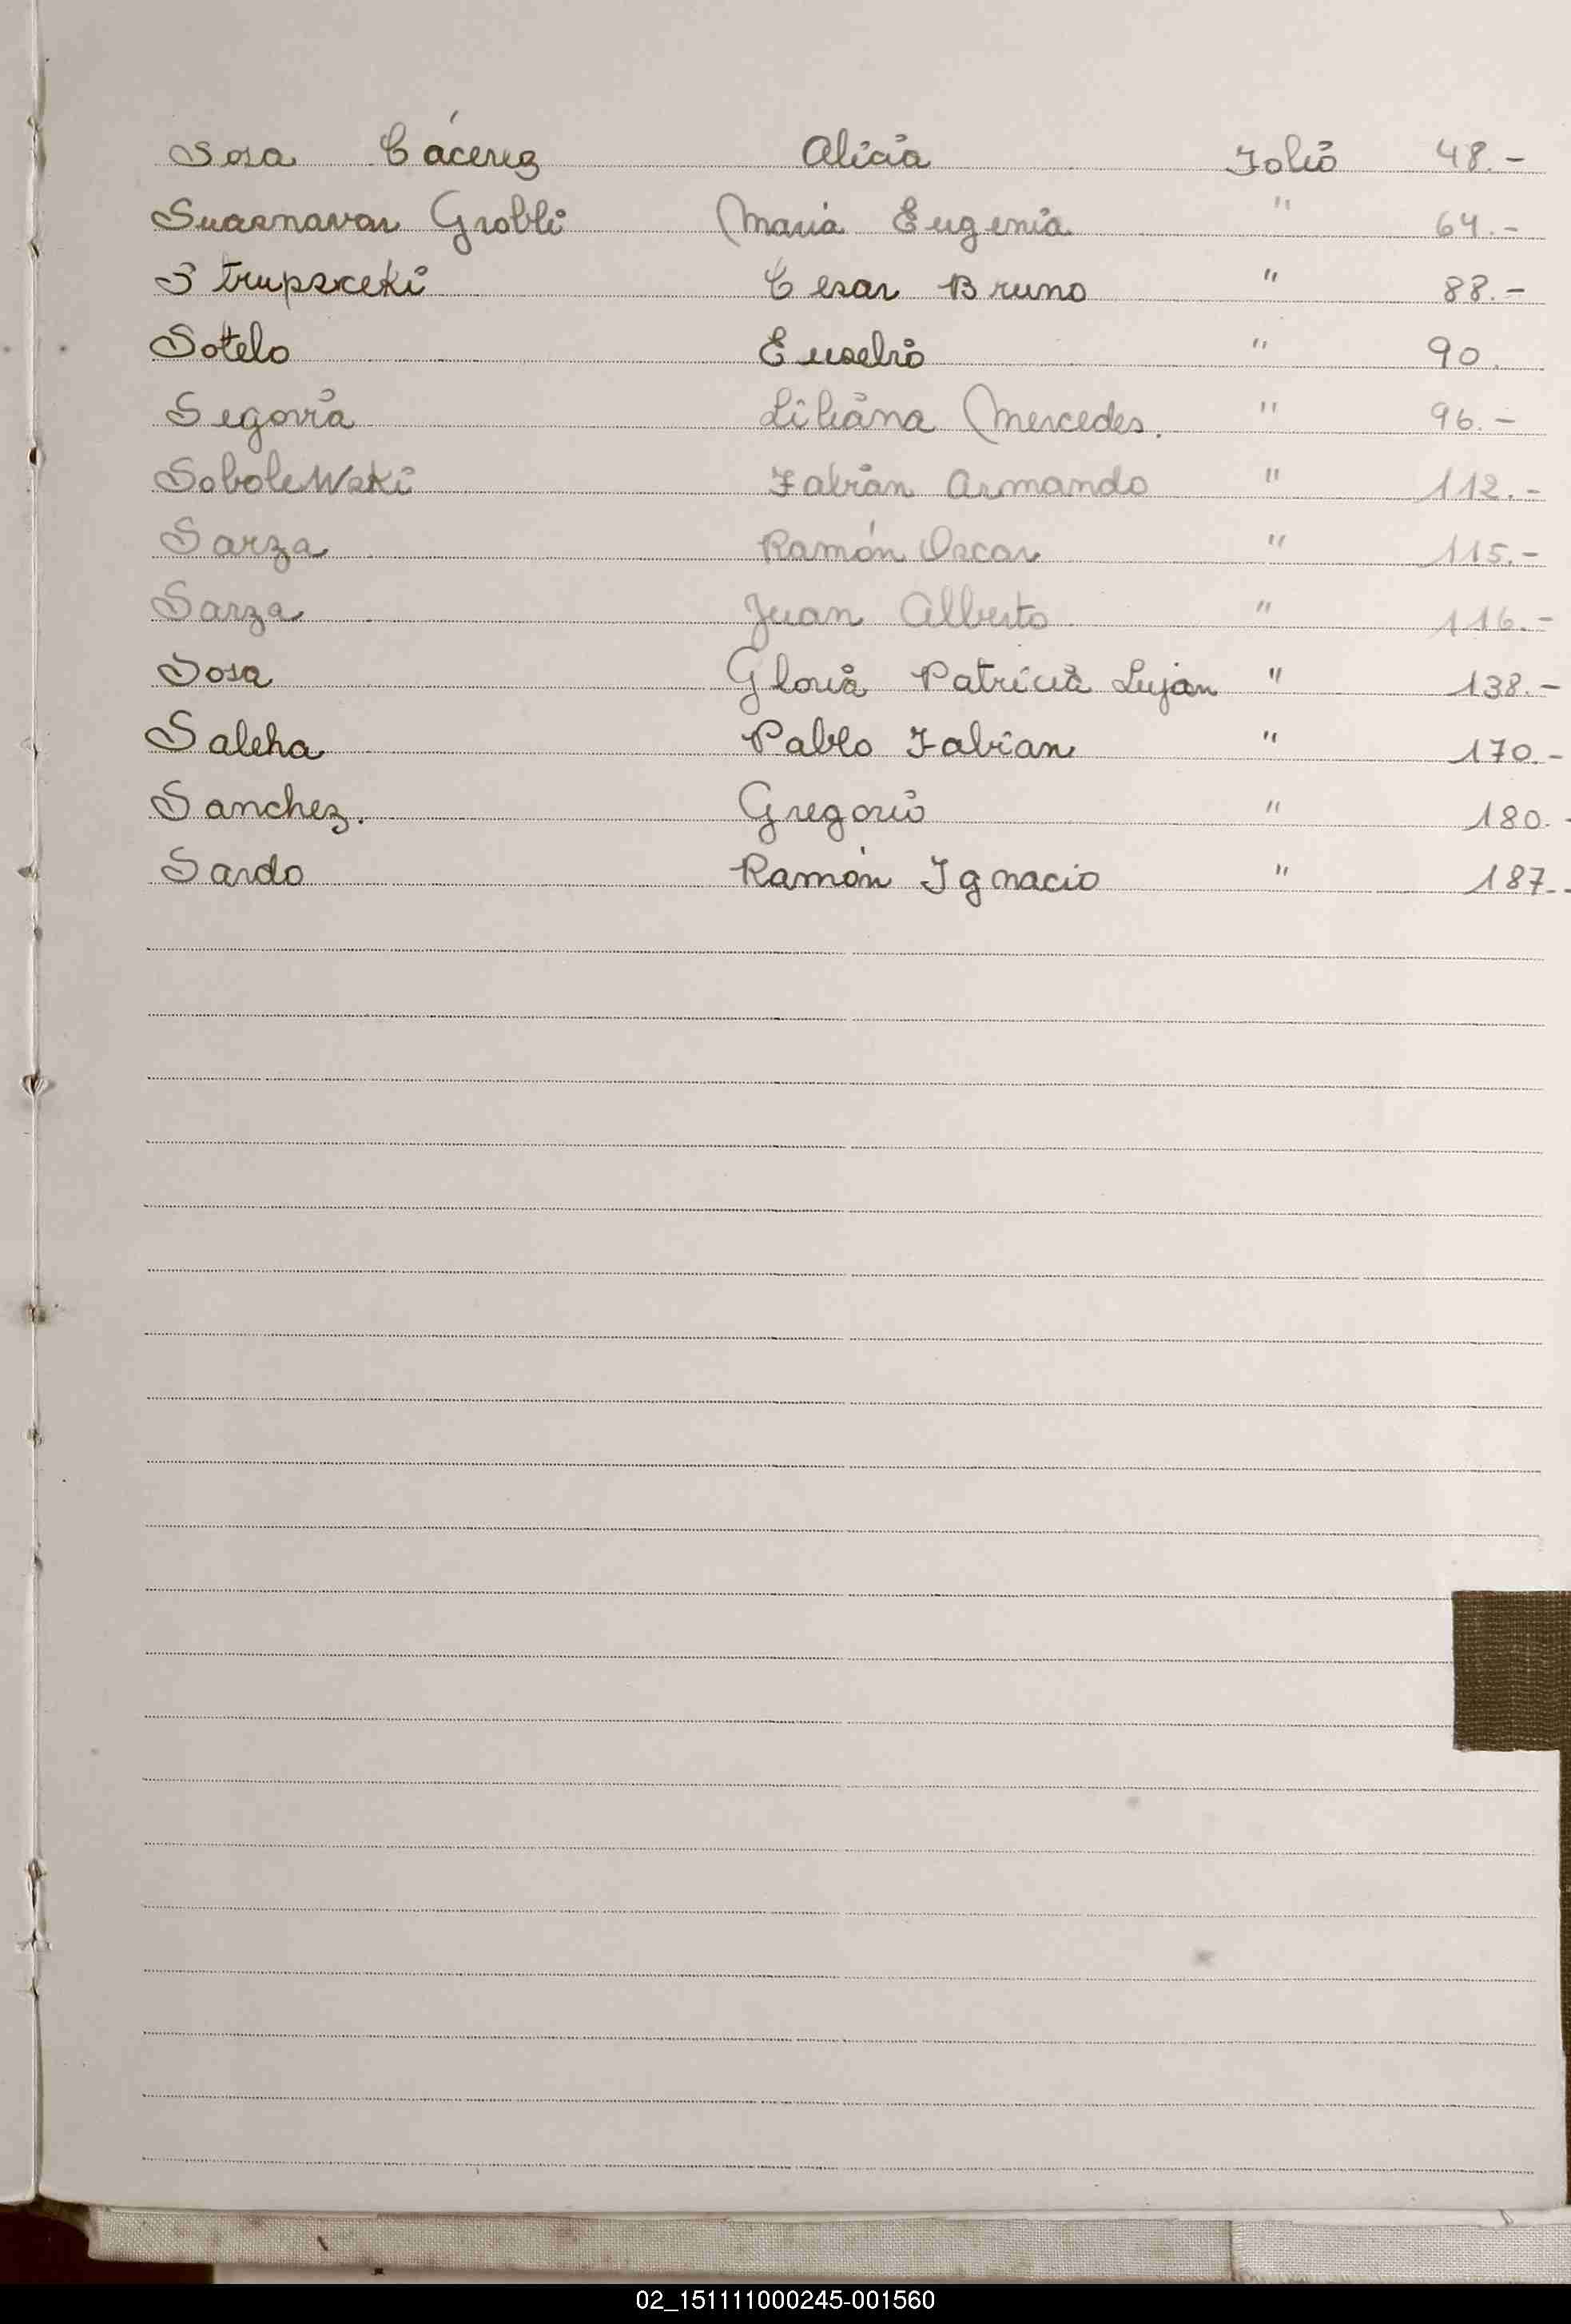 Sosa Cácerez Alicia Folio 48.-
Suasnavar Grobli Maria Eugenia " 64.-
Strupsceki Cesar Bruno " 88.-
Sotelo Eusebio " 90.
Segovia Liliana Mercedes. " 96.-
Sobolewski Fabian Armando " 112.-
Sarza Ramón Oscar " 115.-
Sarza Juan Alberto " 116.-
Sosa Gloria Patricia Lujan " 138.-
Saleha Pablo Fabian " 170.-
Sanchez. Gregorio " 180.-
Sardo Ramón Ignacio " 187.-
02_151111000245-001560